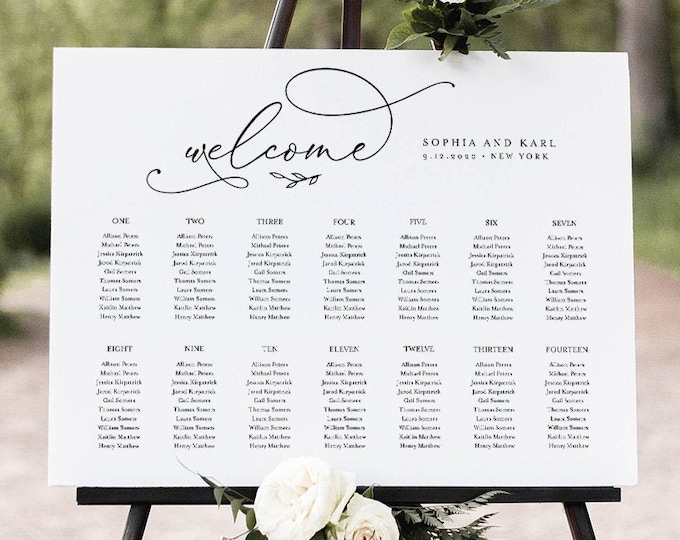 welcome
SOPHIA AND KARL
9.12.2020 • NEW YORK
ONE
Allison Peters
Michael Peters
Jessica Kirkpatrick
Jarod Kirkpatrick
Gail Somers
Thomas Somers
Laura Somers
William Somers
Kaitlin Matthew
Henry Matthew
TWO
Allison Peters
Michael Peters
Jessica Kirkpatrick
Jarod Kirkpatrick
Gail Somers
Thomas Somers
Laura Somers
William Somers
Kaitlin Matthew
Henry Matthew
THREE
Allison Peters
Michael Peters
Jessica Kirkpatrick
Jarod Kirkpatrick
Gail Somers
Thomas Somers
Laura Somers
William Somers
Kaitlin Matthew
Henry Matthew
FOUR
Allison Peters
Michael Peters
Jessica Kirkpatrick
Jarod Kirkpatrick
Gail Somers
Thomas Somers
Laura Somers
William Somers
Kaitlin Matthew
Henry Matthew
FIVE
Allison Peters
Michael Peters
Jessica Kirkpatrick
Jarod Kirkpatrick
Gail Somers
Thomas Somers
Laura Somers
William Somers
Kaitlin Matthew
Henry Matthew
SIX
Allison Peters
Michael Peters
Jessica Kirkpatrick
Jarod Kirkpatrick
Gail Somers
Thomas Somers
Laura Somers
William Somers
Kaitlin Matthew
Henry Matthew
SEVEN
Allison Peters
Michael Peters
Jessica Kirkpatrick
Jarod Kirkpatrick
Gail Somers
Thomas Somers
Laura Somers
William Somers
Kaitlin Matthew
Henry Matthew
EIGHT
Allison Peters
Michael Peters
Jessica Kirkpatrick
Jarod Kirkpatrick
Gail Somers
Thomas Somers
Laura Somers
William Somers
Kaitlin Matthew
Henry Matthew
NINE
Allison Peters
Michael Peters
Jessica Kirkpatrick
Jarod Kirkpatrick
Gail Somers
Thomas Somers
Laura Somers
William Somers
Kaitlin Matthew
Henry Matthew
TEN
Allison Peters
Michael Peters
Jessica Kirkpatrick
Jarod Kirkpatrick
Gail Somers
Thomas Somers
Laura Somers
William Somers
Kaitlin Matthew
Henry Matthew
ELEVEN
Allison Peters
Michael Peters
Jessica Kirkpatrick
Jarod Kirkpatrick
Gail Somers
Thomas Somers
Laura Somers
William Somers
Kaitlin Matthew
Henry Matthew
TWELVE
Allison Peters
Michael Peters
Jessica Kirkpatrick
Jarod Kirkpatrick
Gail Somers
Thomas Somers
Laura Somers
William Somers
Kaitlin Matthew
Henry Matthew
THIRTEEN
Allison Peters
Michael Peters
Jessica Kirkpatrick
Jarod Kirkpatrick
Gail Somers
Thomas Somers
Laura Somers
William Somers
Kaitlin Matthew
Henry Matthew
FOURTEEN
Allison Peters
Michael Peters
Jessica Kirkpatrick
Jarod Kirkpatrick
Gail Somers
Thomas Somers
Laura Somers
William Somers
Kaitlin Matthew
Henry Matthew